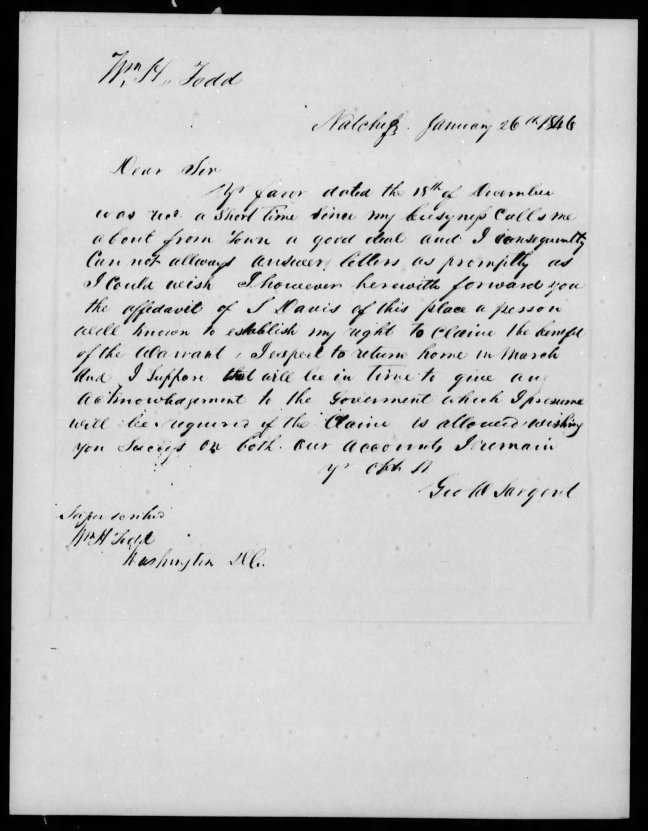 Wm. H. Todd
Natchez. January 26th 1846
Dear Sir
Yr favor dated the 18th of December
was rec. a short time since my business calls me
about from town a good deal and I consequently
can not allways answer letters as promptly as
I could wish I however herewith forward you
the affidavit of S Davis of this place a person
well known to establish my right to claim the benefit
of the warant, I expect to return home in March
and I suppose that will be in time to give any
acknowledgement to the Goverment which I presume
will be required if the Claim is allowed, wishing
you success on both our accounts I remain
yr obt St
Geo W Sargent
Superscribed
Wm H Todd
Washington DC.